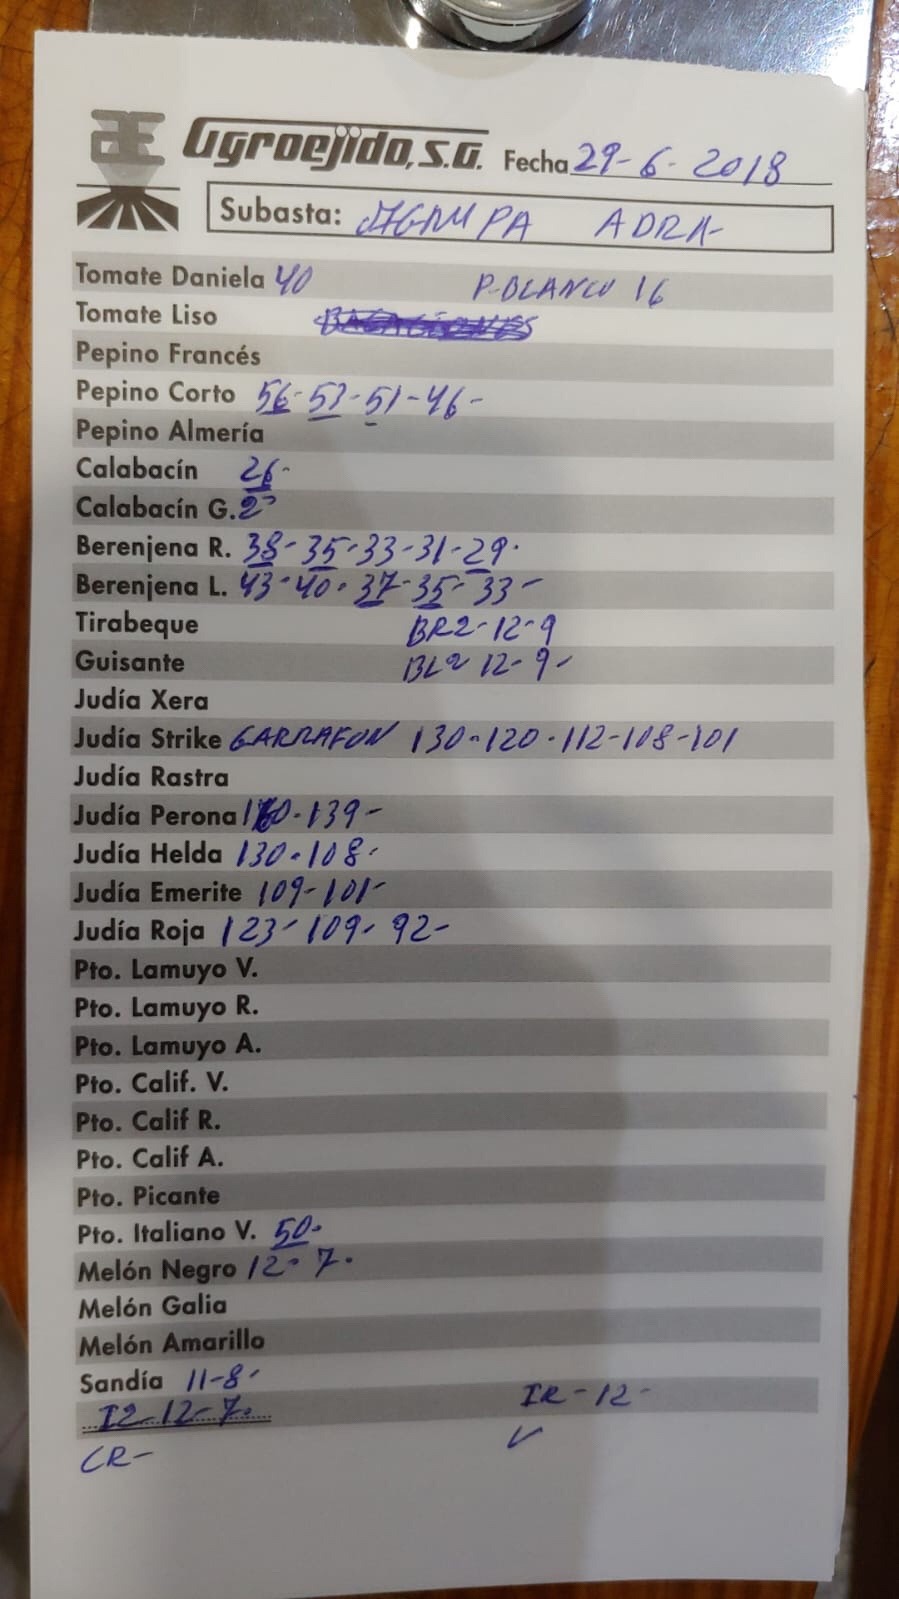 Agroejido, S.A. Fecha 29-6-2018
Subasta: AGRUPA ADRA-
Tomate Daniela 40 P-BLANCO 16
Tomate Liso
Pepino Francés
Pepino Corto 56-53-51-46-
Pepino Almería
Calabacín 26-
Calabacín G.
Berenjena R. 38-35-33-31-29-
Berenjena L. 43-40-37-35-33-
Tirabeque BR2-12-9
Guisante BL2 12-9-
Judía Xera
Judía Strike GARRAFON 130-120-112-108-101
Judía Rastra
Judía Perona 139-
Judía Helda 130-108-
Judía Emerite 109-101-
Judía Roja 123-109-92-
Pto. Lamuyo V.
Pto. Lamuyo R.
Pto. Lamuyo A.
Pto. Calif. V.
Pto. Calif R.
Pto. Calif A.
Pto. Picante
Pto. Italiano V. 50-
Melón Negro 12-7-
Melón Galia
Melón Amarillo
Sandía 11-8-
I2-12-7- IR-12-
CR-